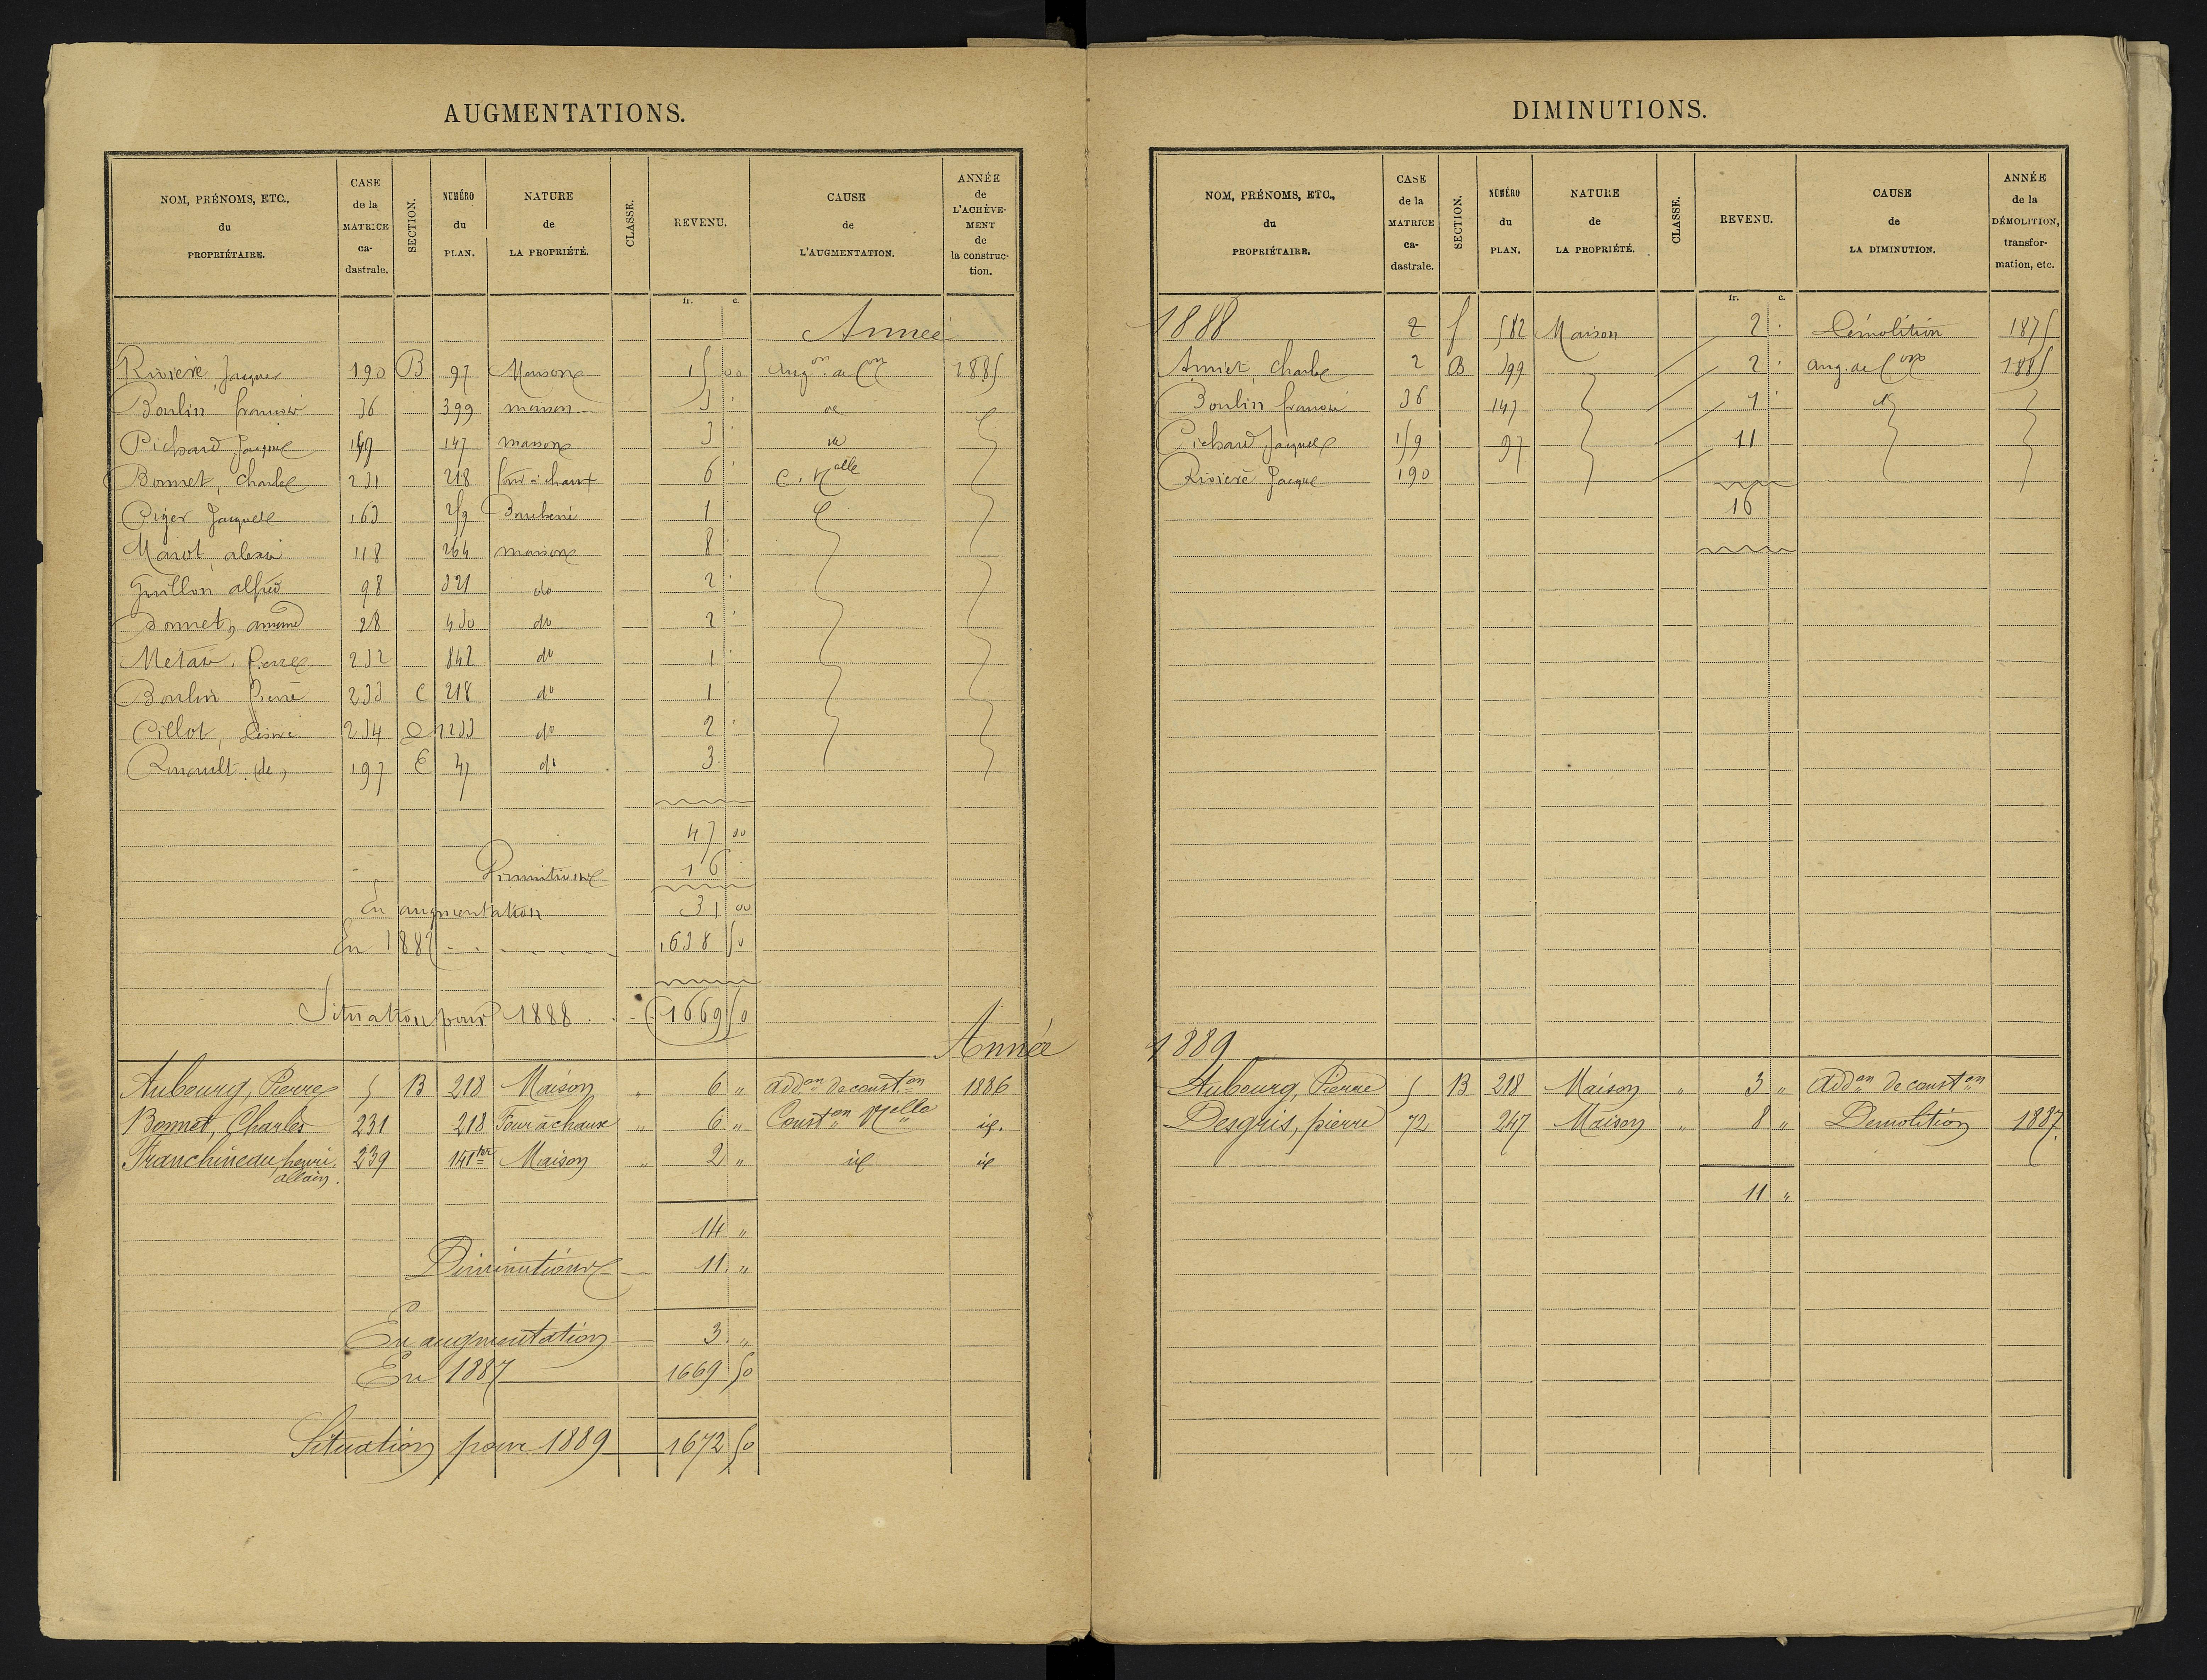 AUGMENTATIONS.
NOM, PRÉNOMS, ETC., du PROPRIÉTAIRE. CASE de la MATRICE ca-dastrale. SECTION. NUMÉRO du PLAN. NATURE de LA PROPRIÉTÉ. CLASSE. REVENU. CAUSE de L'AUGMENTATION. ANNÉE de L'ACHÈVE-MENT de la construc-tion.
fr. c.
Année
Rivière, Jacques 190 B 97 Maison 15 00 Augon de Con 1885
Boulin 36 399 maison 3
Pichard Jacques 147 maison 3
Bonnet, Charles 231 218 four à chaux 6 C. Nelle
Piger Jacques 163 259 1
Marot, alexis 118 264 maison 8
Guillon alfred 98 321 do 2
Bonnet, 28 430 do 2
Pierre 232 842 do 1
Boulin Pierre 233 C 218 do 1
Désiré 234 1233 do 2
(de) 197 E 47 do 3
47 00
Diminutions 16
En augmentation 31 00
En 1887 1638 50
Situation pour 1888 1669 50
Année
Aubourg, Pierre 5 B 218 Maison " 6 " addon de conston 1886
Bonnet, Charles 231 218 Four à chaux " 6 " Conston Nelle id.
Franchineau henri allain. 239 141 ter Maison " 2 " id id
14 "
Diminutions 11 "
En augmentation 3 "
En 1887 1669 50
Situation pour 1889 1672 50
DIMINUTIONS.
NOM, PRÉNOMS, ETC., du PROPRIÉTAIRE. CASE de la MATRICE ca-dastrale. SECTION. NUMÉRO du PLAN. NATURE de LA PROPRIÉTÉ. CLASSE. REVENU. CAUSE de LA DIMINUTION. ANNÉE de la DÉMOLITION, transfor-mation, etc.
fr. c.
1888 2 582 Maison 2 Démolition 1875
Charles 2 B 399 2 aug. de Con 1885
Boulin 36 147 1
Pichard Jacques 159 97 11
Rivière Jacques 190
16
1889
Aubourg, Pierre 5 B 218 Maison " 3 " addon de conston
Desgris, pierre 72 247 Maison " 8 " Demolition 1887.
11 "